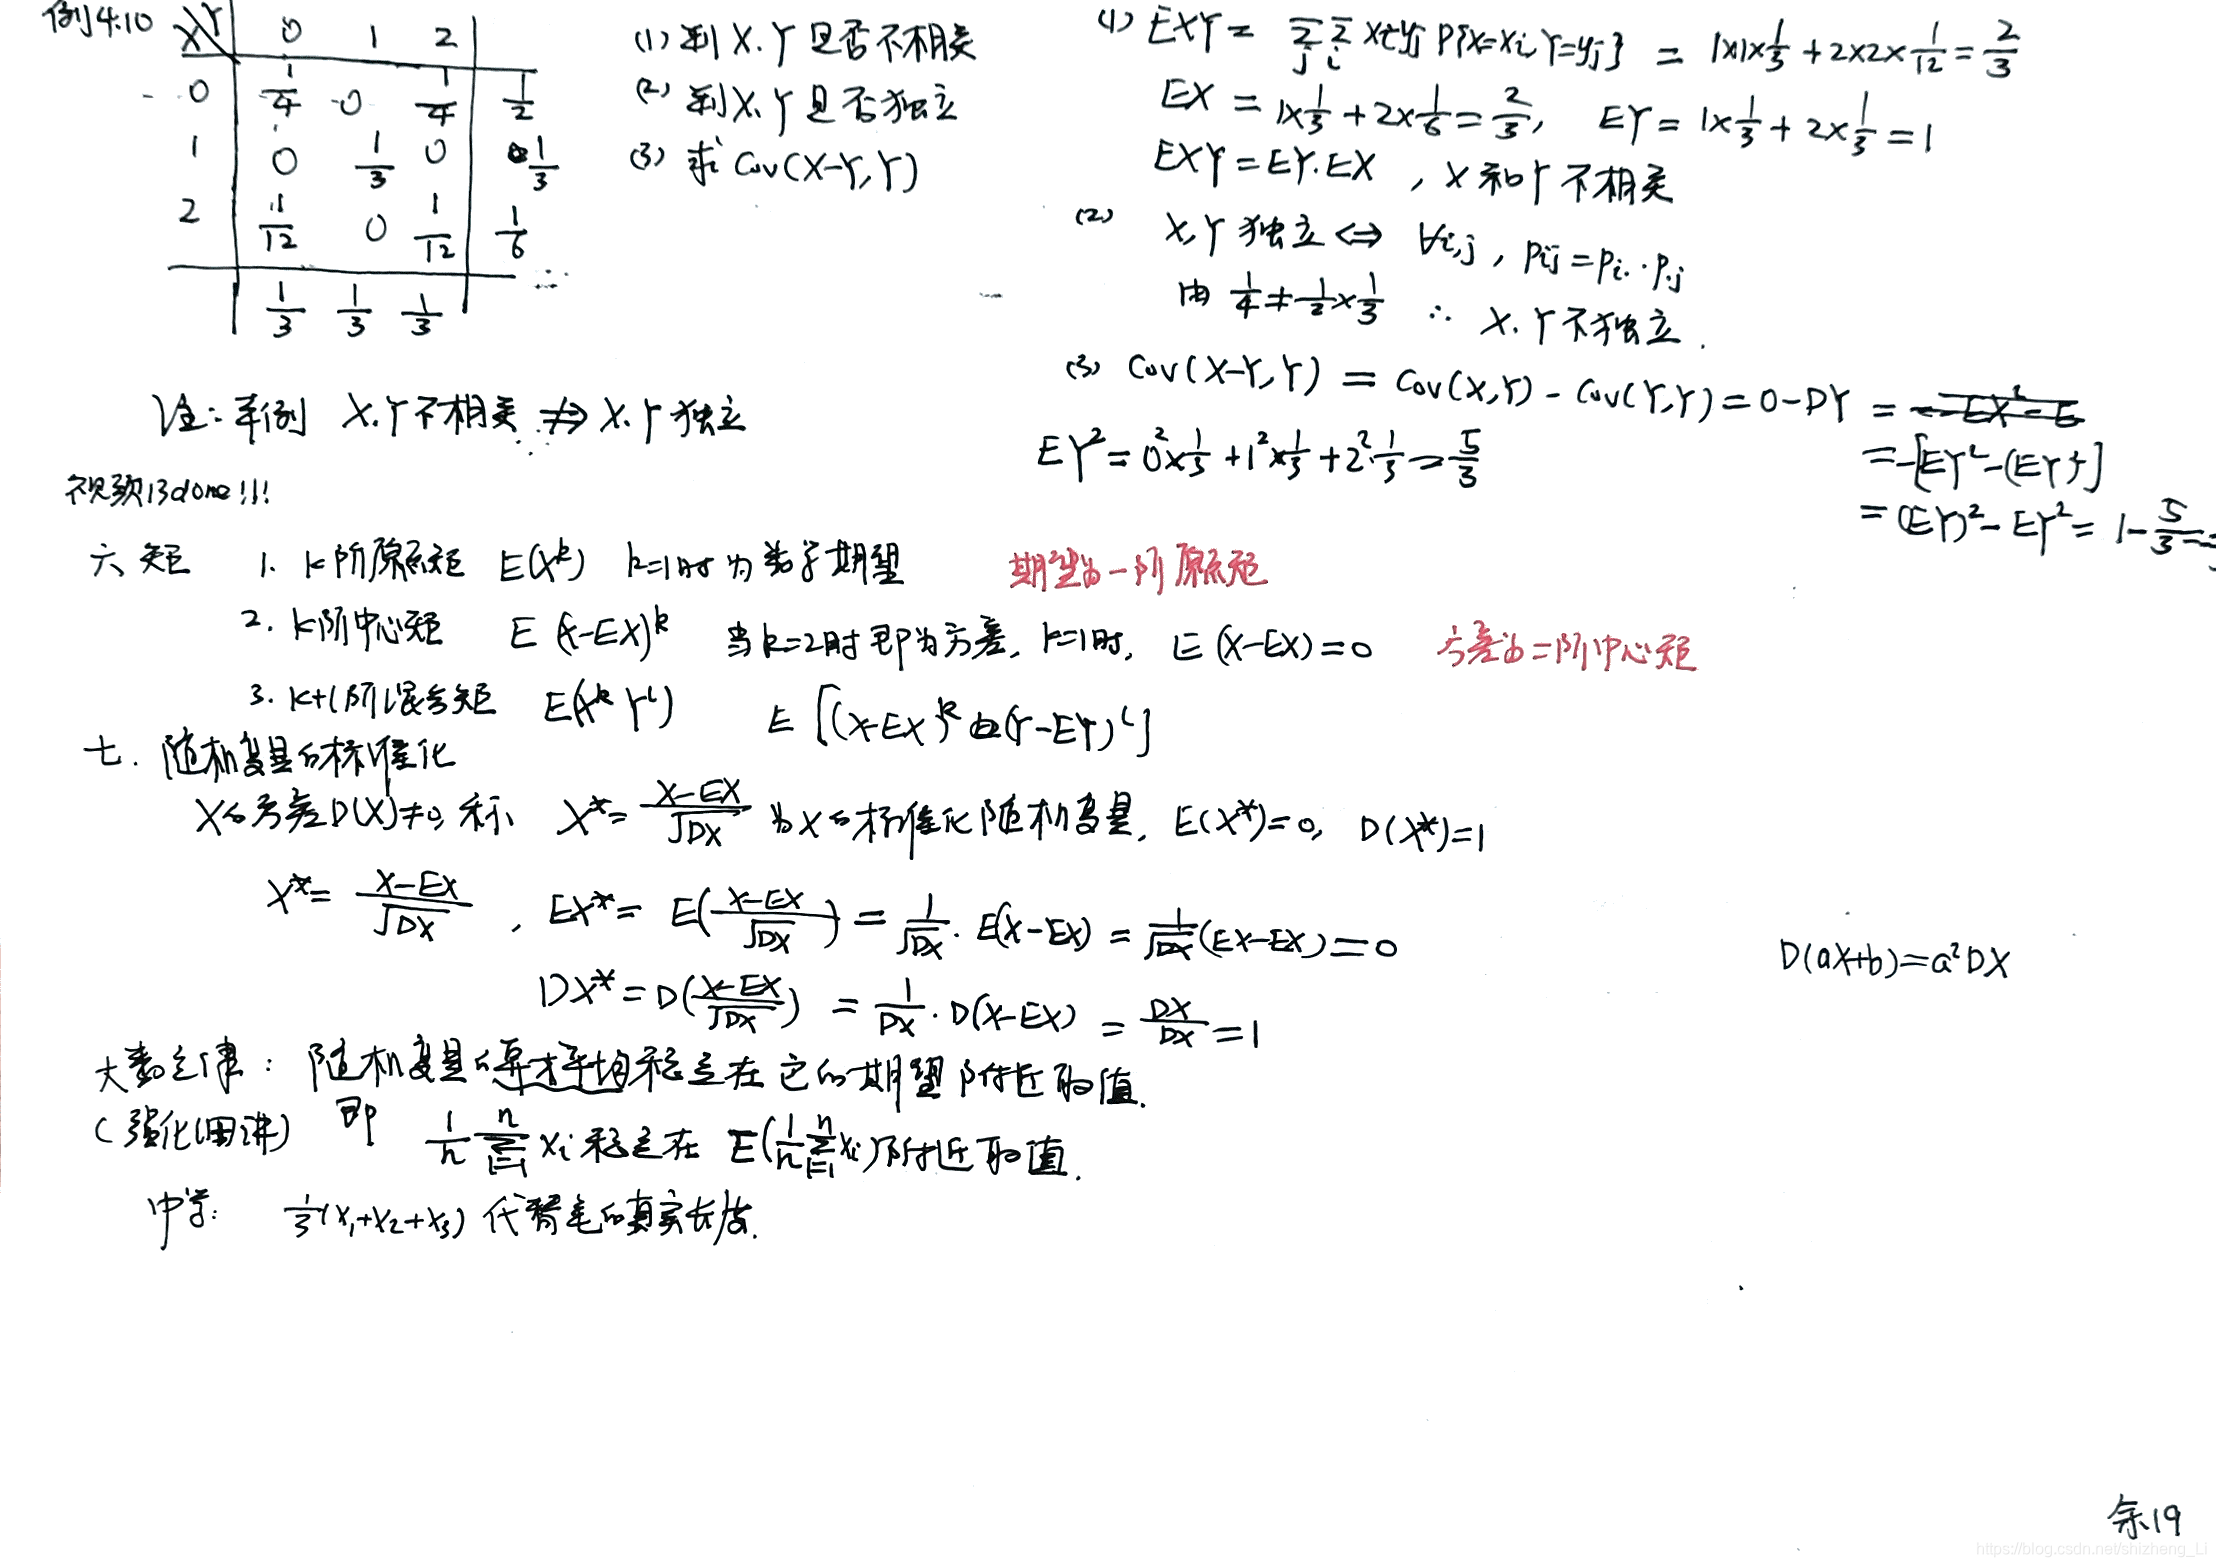 例4.10 X Y 0 1 2
0 1/4 0 1/4 1/2
1 0 1/3 0 1/3
2 1/12 0 1/12 1/6
1/3 1/3 1/3
(1) 判X.Y是否不相关
(2) 判X.Y是否独立
(3) 求Cov(X-Y,Y)
注:本例 X.Y不相关 ⇏ X.Y独立
(1) EXY = ∑j ∑i xiyj P{X=xi,Y=yj} = 1×1×1/3 + 2×2×1/12 = 2/3
EX = 1×1/3 + 2×1/6 = 2/3, EY = 1×1/3 + 2×1/3 = 1
EXY = EY.EX , X和Y不相关
(2) X,Y独立 ⇔ ∀i,j , Pij = Pi. · P.j
由 1/4 ≠ 1/2×1/3 ∴ X.Y不独立.
(3) Cov(X-Y,Y) = Cov(X,Y) - Cov(Y,Y) = 0-DY
= -[EY²-(EY)²]
= (EY)² - EY² = 1 - 5/3 =
EY² = 0²×1/3 + 1²×1/3 + 2²·1/3 = 5/3
视频13done!!!
六 矩 1. k阶原点矩 E(X^k) k=1时为数学期望 期望为一阶原点矩
2. k阶中心矩 E(X-EX)^k 当k=2时即为方差, k=1时, E(X-EX)=0 方差为二阶中心矩
3. k+l阶混合矩 E(X^k Y^l) E[(X-EX)^k (Y-EY)^l]
七. 随机变量的标准化
X的方差D(X)≠0, 称 X* = (X-EX)/√DX 为X的标准化随机变量, E(X*)=0, D(X*)=1
X* = (X-EX)/√DX , EX* = E((X-EX)/√DX) = 1/√DX · E(X-EX) = 1/√DX (EX-EX) = 0
D(aX+b)=a²DX
DX* = D((X-EX)/√DX) = 1/DX · D(X-EX) = DX/DX = 1
大数定律: 随机变量的算术平均稳定在它的期望附近取值.
(强化课讲) 即 1/n ∑_{i=1}^{n} Xi 稳定在 E(1/n ∑_{i=1}^{n} Xi)附近取值.
中学: 1/3(X1+X2+X3) 代替笔的真实长度.
余19
https://blog.csdn.net/shizheng_Li